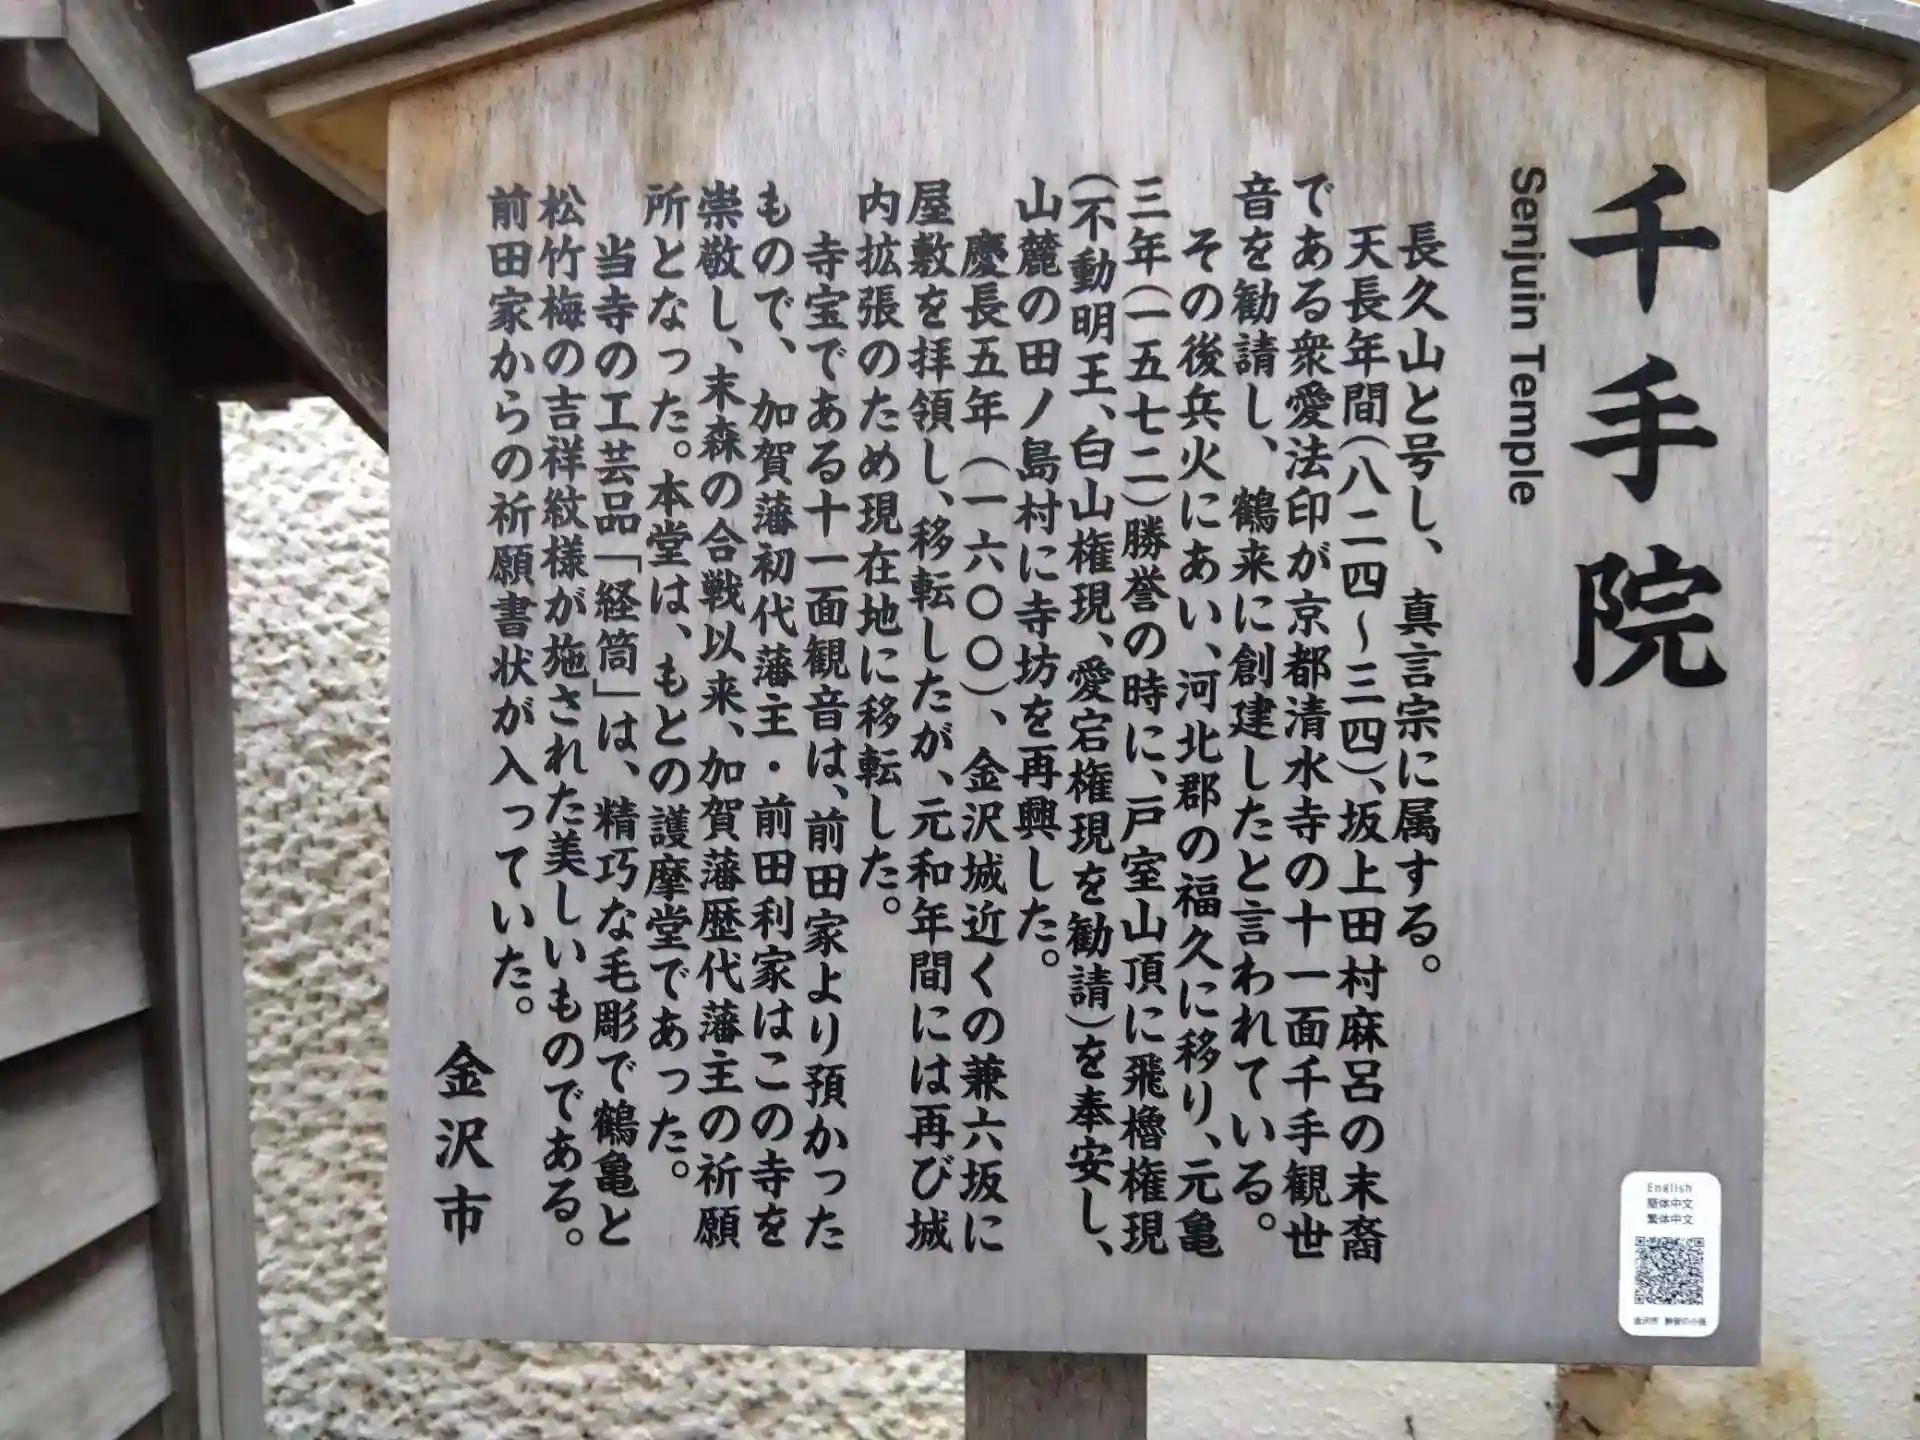 千手院
Senjuin Temple
長久山と号し、真言宗に属する。
天長年間(八二四~三四)、坂上田村麻呂の末裔
である衆愛法印が京都清水寺の十一面千手観世
音を勧請し、鶴来に創建したと言われている。
その後兵火にあい、河北郡の福久に移り、元亀
三年(一五七二)勝誉の時に、戸室山頂に飛櫓権現
(不動明王、白山権現、愛宕権現を勧請)を奉安し、
山麓の田ノ島村に寺坊を再興した。
慶長五年(一六〇〇)、金沢城近くの兼六坂に
屋敷を拝領し、移転したが、元和年間には再び城
内拡張のため現在地に移転した。
寺宝である十一面観音は、前田家より預かった
もので、加賀藩初代藩主・前田利家はこの寺を
崇敬し、末森の合戦以来、加賀藩歴代藩主の祈願
所となった。本堂は、もとの護摩堂であった。
当寺の工芸品「経筒」は、精巧な毛彫で鶴亀と
松竹梅の吉祥紋様が施された美しいものである。
前田家からの祈願書状が入っていた。
金沢市
English
簡体中文
繁体中文
金沢市 静音の小径